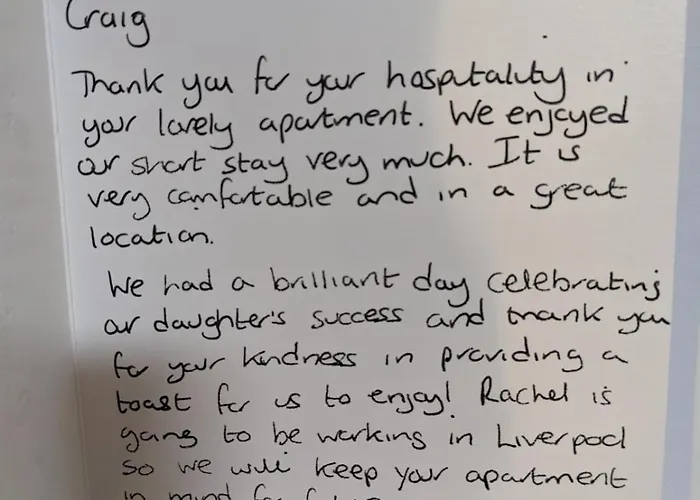 Craig
Thank you for your hospitality in
your lovely apartment. We enjoyed
our short stay very much. It is
very comfortable and in a great
location.
We had a brilliant day celebrating
our daughter's success and thank you
for your kindness in providing a
toast for us to enjoy! Rachel is
going to be working in Liverpool
so we will keep your apartment
in mind for